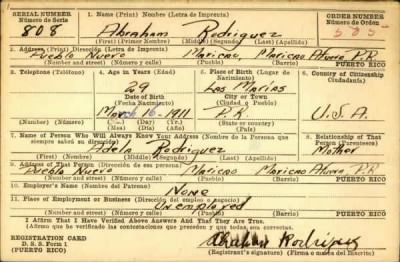 SERIAL NUMBER 1. Name (Print) Nombre (Letra de Imprenta) ORDER NUMBER
Número de Serie Número de Orden
808 Abraham Rodriguez
(First) (Primer Nombre) (Middle) (Segundo) (Last) (Apellido)
2. Address (Print) Dirección (Letra de Imprenta)
Pueblo Nuevo Maricao, Maricao P.R.
(Number and street) (Número y calle) (Town) (Pueblo) (Municipality) (Municipio) PUERTO RICO
3. Telephone (Teléfono) 4. Age in Years (Edad) 5. Place of Birth (Lugar de Nacimiento) 6. Country of Citizenship (Ciudadanía)
29 Las Marías
Date of Birth City or Town
(Fecha Nacimiento) (Ciudad o Pueblo)
March 16 - 1911 P.R. U.S.A.
(Number) (Número) (Mo.) (Day) (Yr.) State or country
(Mes) (Día) (Año) (Estado o país)
7. Name of Person Who Will Always Know Your Address (Nombre de la Persona que siempre sabrá su dirección) 8. Relationship of That Person (Parentesco)
Adela Rodriguez Mother
(First) (Primer nombre) (Middle) (Segundo) (Last) (Apellido)
9. Address of That Person (Dirección de esa persona)
Pueblo Nuevo Maricao Maricao P.R.
(Number and street) (Número y calle) (Town) (Pueblo) (Municipality) (Municipio) PUERTO RICO
10. Employer's Name (Nombre del Patrono)
None
11. Place of Employment or Business (Dirección del empleo o negocio)
Unemployed
(Number and street) (Número y calle) (Town) (Pueblo) (Municipality) (Municipio)
I Affirm That I Have Verified Above Answers And That They Are True.
(Afirmo que he verificado las contestaciones que preceden y que todas son ciertas.)
REGISTRATION CARD
D. S. S. Form 1 Abraham Rodríguez
(PUERTO RICO) (Registrant's signature) (Firma o marca del Inscrito)